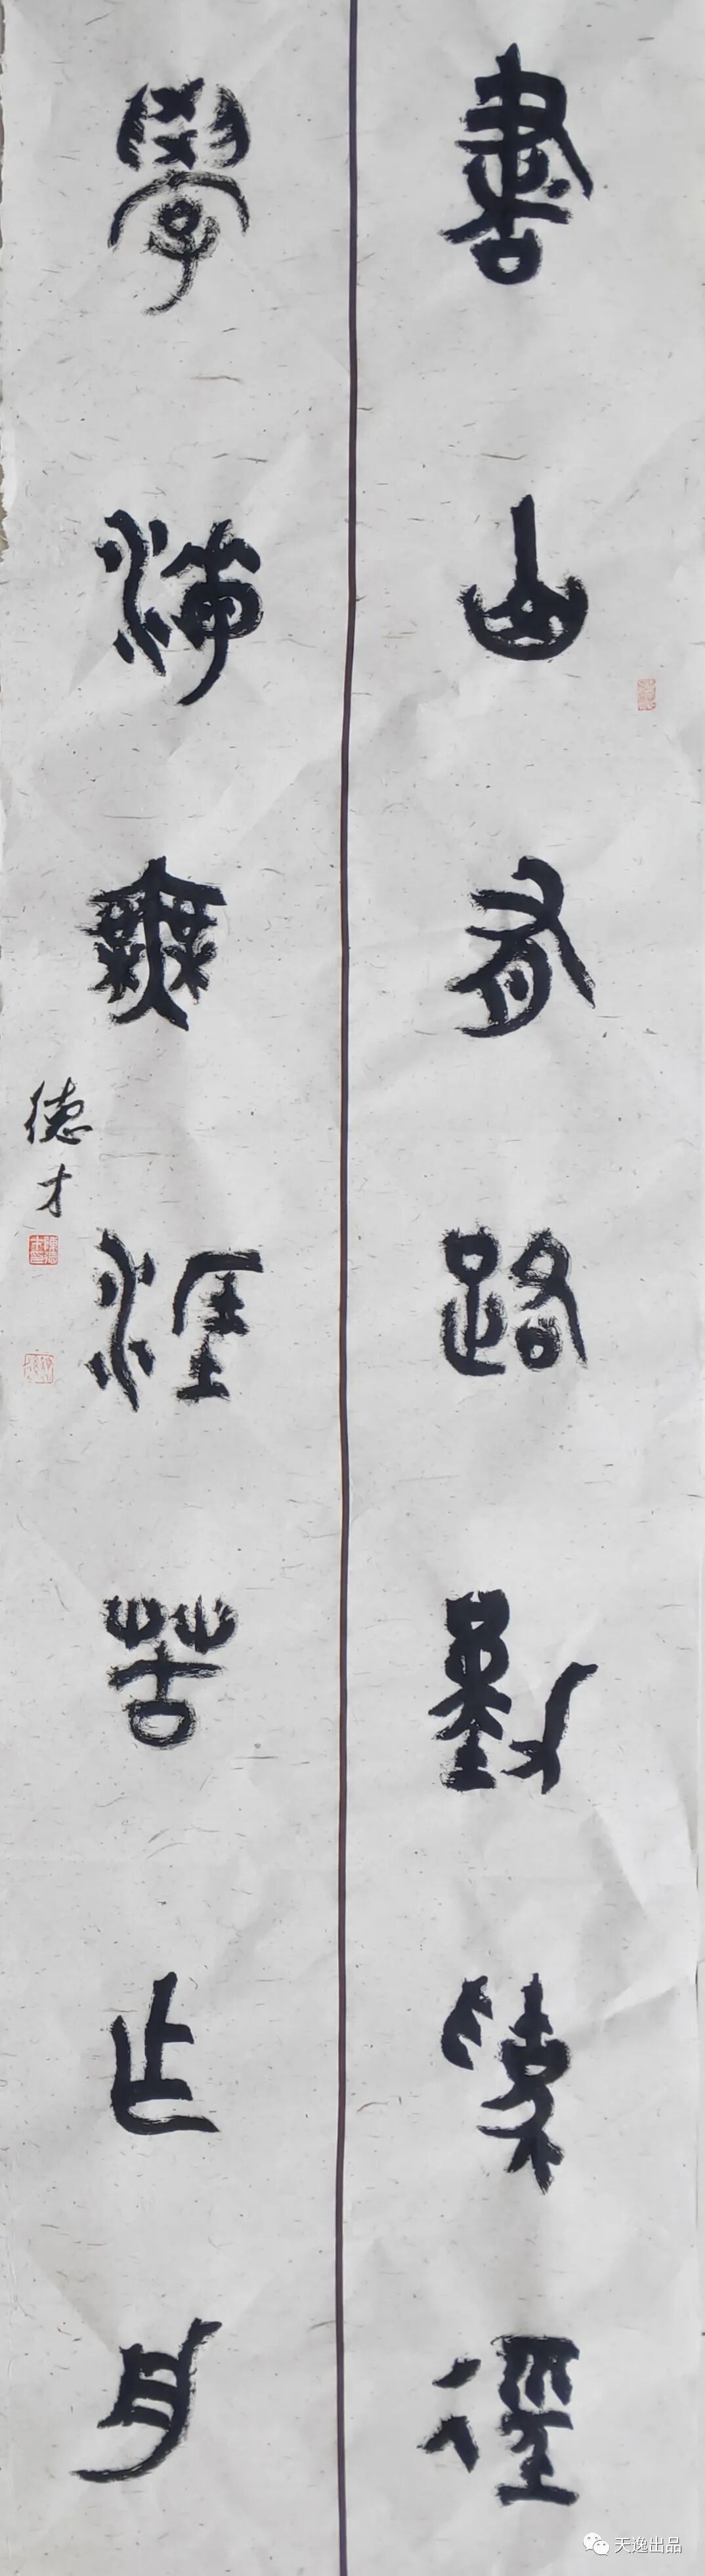 書山有路勤為徑
學海無涯苦作舟
德才
天逸出品